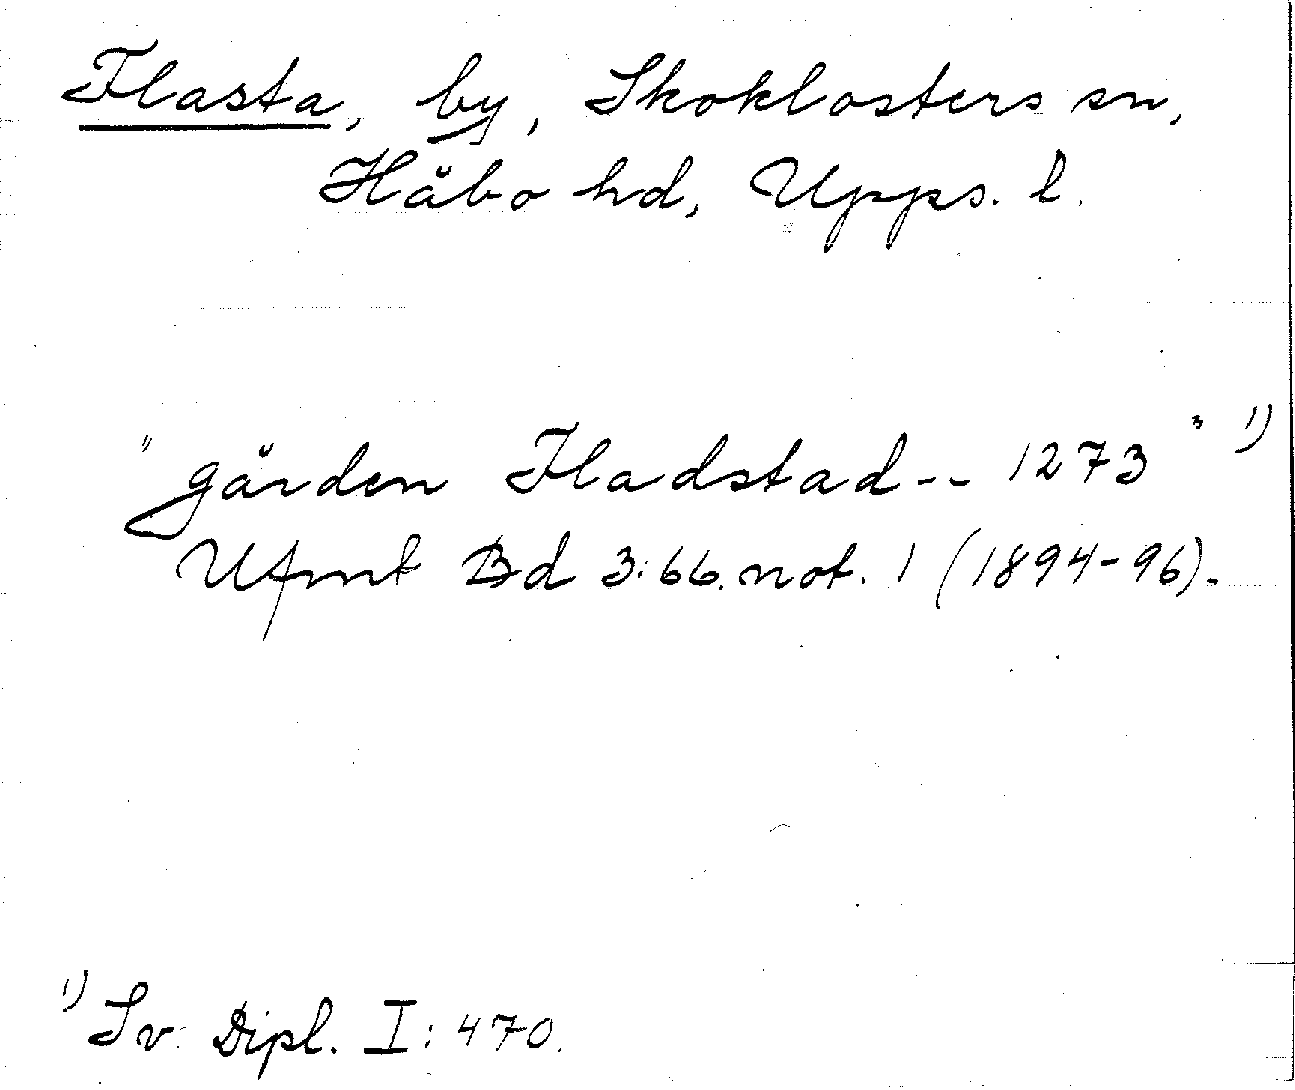 Flasta, by, Skoklosters sn,
Håbo hd, Upps. l.
"gården Fladstad -- 1273" 1)
Ufmt Bd 3:66. not. 1 (1894-96).
1) Sv. Dipl. I: 470.